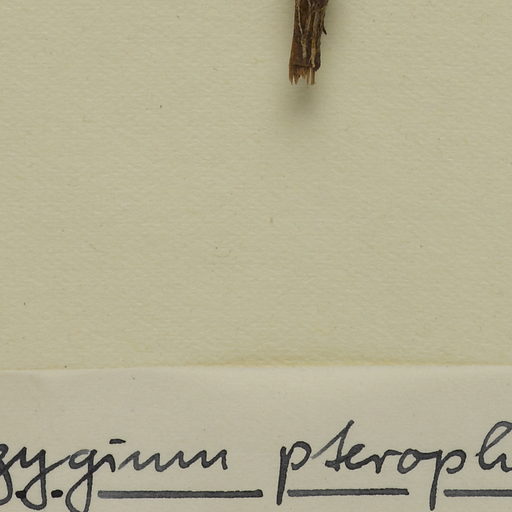 zygium pteroph